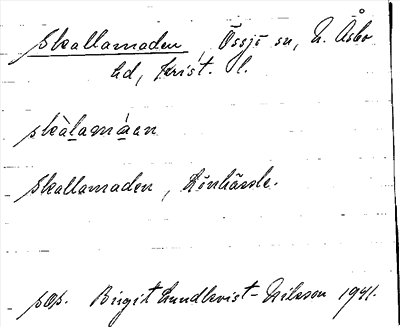 Skallamaden, Össjö sn, N. Åsbo
hd, Krist. l.
skàlamáan
Skallamaden,
pap. Birgit Lundkvist-Nilsson 1941.